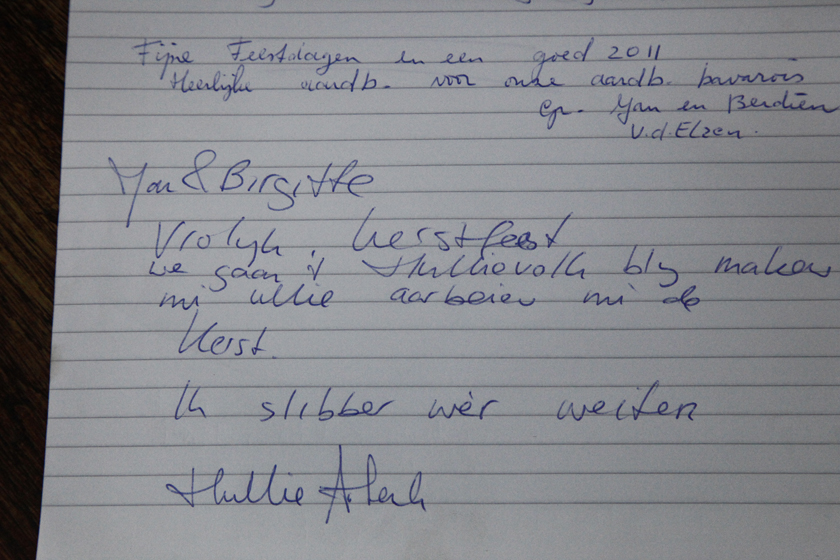 Fijne Feestdagen en een goed 2011
Heerlijke aardb. voor onze aardb. bavarois
Gr. Jan en Berdien
v.d. Elzen.
Jan & Birgitte
Vrolyk. kerstfeest
we gaan 't Hullievolk bly maken
mi ullie aarbeien mi de
Kerst.
Ik slibber wèr weiten
Hullie